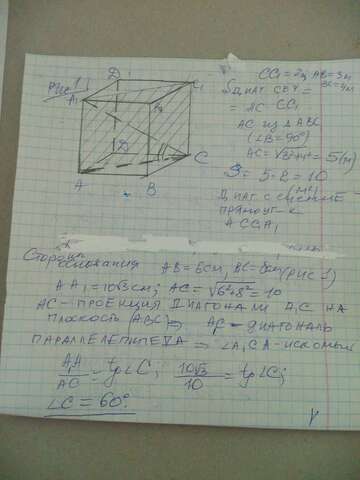 Рис 1
D₁
C₁
A₁
B₁
D
C
A
B
CC₁ = 2м, AB = 3м
BC = 4м
Sдиаг сеч =
= AC · CC₁
AC из ΔABC
(∠B = 90°)
AC = √3²+4² = 5(м)
S = 5 · 2 = 10
(м²)
Диаг сечение
прямоуг-к
ACC₁A₁
Стороны
основания AB = 6см, BC = 8см (рис 1)
AA₁ = 10√3см; AC = √6²+8² = 10
AC - проекция диагонали A₁C на
плоскость (ABC) ⇒ AC - диагональ
параллелепипеда ⇒ ∠A₁CA - искомый
AA₁/AC = tg∠C; 10√3/10 = tg∠C;
∠C = 60°